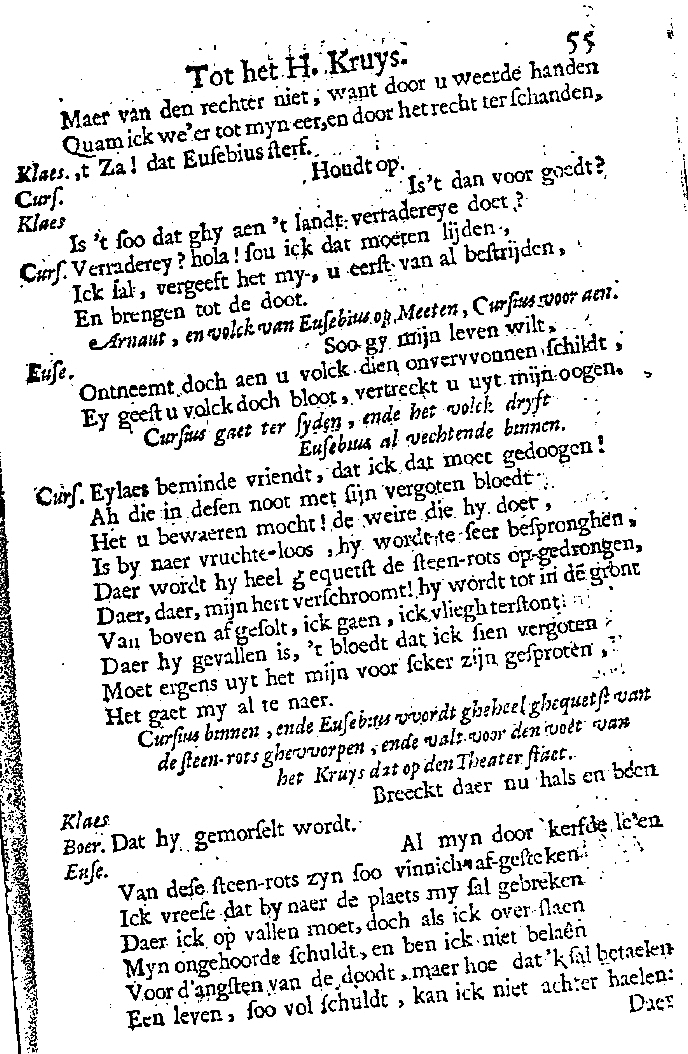 Tot het H. Kruys. 55
Maer van den rechter niet, want door u weerde handen
Quam ick we'er tot myn eer, en door het recht ter schanden,
Klaes. 't Za! dat Eusebius sterf.
Curs. Houdt op.
Klaes Is't dan voor goedt?
Is 't soo dat ghy aen 't landt verradereye doet?
Curs. Verraderey? hola! sou ick dat moeten lijden,
Ick sal, vergeeft het my, u eerst van al bestrijden,
En brengen tot de doot.
Arnaut, en volck van Eusebius op Meeten, Cursius voor aen.
Euse. Soo gy mijn leven wilt,
Ontneemt doch aen u volck dien onvervvonnen schildt,
Ey geeft u volck doch bloot, vertreckt u uyt mijn oogen.
Cursius gaet ter syden, ende het volck dryft
Eusebius al vechtende binnen.
Curs. Eylaes beminde vriendt, dat ick dat moet gedoogen!
Ah die in desen noot met sijn vergoten bloedt
Het u bewaeren mocht! de weire die hy doet,
Is by naer vruchte-loos, hy wordt te seer bespronghen,
Daer wordt hy heel gequetst de steen-rots op-gedrongen,
Daer, daer, mijn hert verschroomt! hy wordt tot in de gront
Van boven afgesolt, ick gaen, ick vliegh terstont
Daer hy gevallen is, 't bloedt dat ick sien vergoten
Moet ergens uyt het mijn voor seker zijn gesproten,
Het gaet my al te naer.
Cursius binnen, ende Eusebius vvordt gheheel ghequetst van
de steen-rots ghevvorpen, ende valt voor den voet van
het Kruys dat op den Theater staet.
Klaes Breeckt daer nu hals en been
Boer. Dat hy gemorselt wordt.
Euse. Al myn door kerfde le'en
Van dese steen-rots zyn soo vinnich af-gesteken
Ick vreese dat by naer de plaets my sal gebreken
Daer ick op vallen moet, doch als ick over slaen
Myn ongehoorde schuldt, en ben ick niet belaên
Voor d'angsten van de doodt, maer hoe dat 'k sal betaelen
Een leven, soo vol schuldt, kan ick niet achter haelen:
Daer